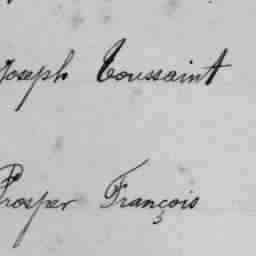 Joseph Toussaint
Prosper François